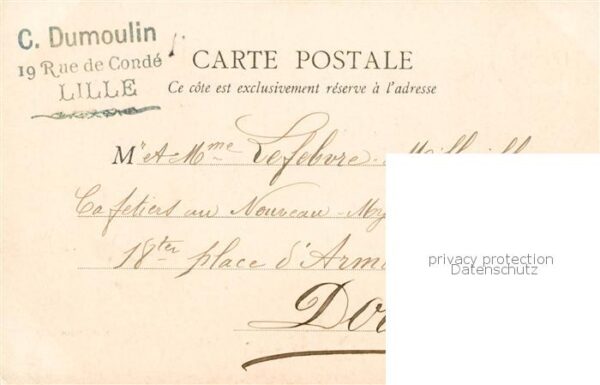 C. Dumoulin
19 Rue de Condé
LILLE
CARTE POSTALE
Ce côte est exclusivement réserve à l'adresse
M^r et M^me Lefebvre
Cafetiers au Nouveau
18^ter place d'Arm
Do
privacy protection
Datenschutz